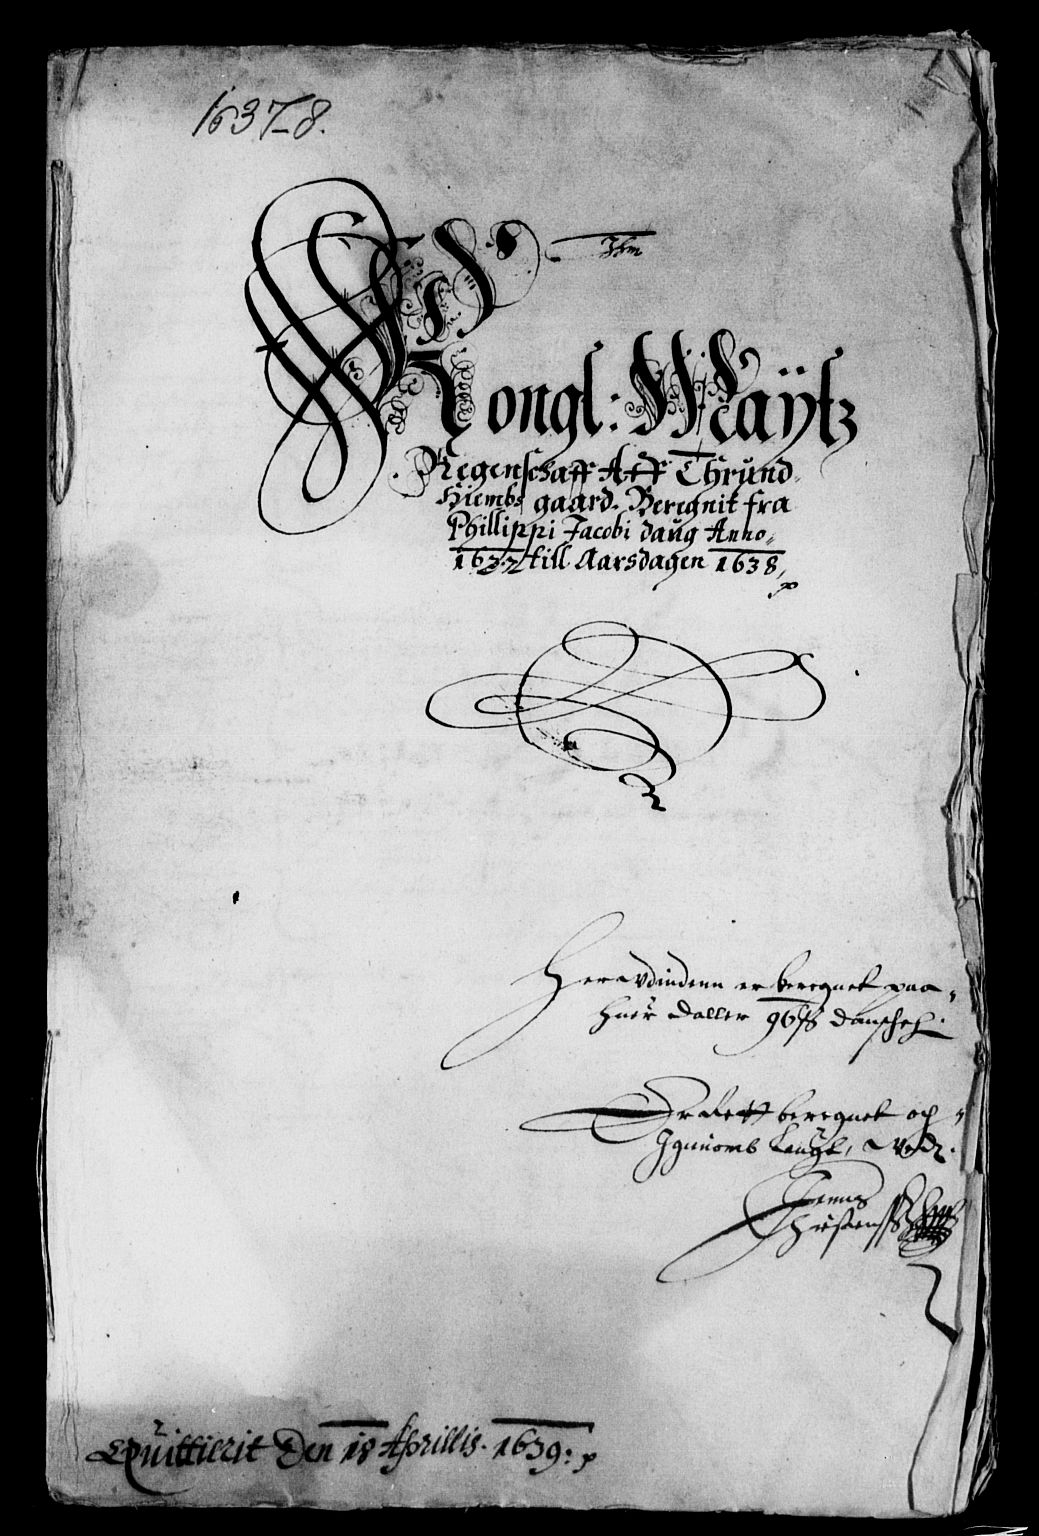 1637-8.
Kongl: Maÿtz
Regenschaff Aff Thrund-
hiembs gaard. Beregnit fra
Phillippi Jacobi daug Anno.
1637 till Aarsdagen 1638,
Herudindenn er beregnet paa
huer daller 96 ß danscheh.
beregnet och
igiennomb
Quittierit Den 18 Aprillis. 1639: